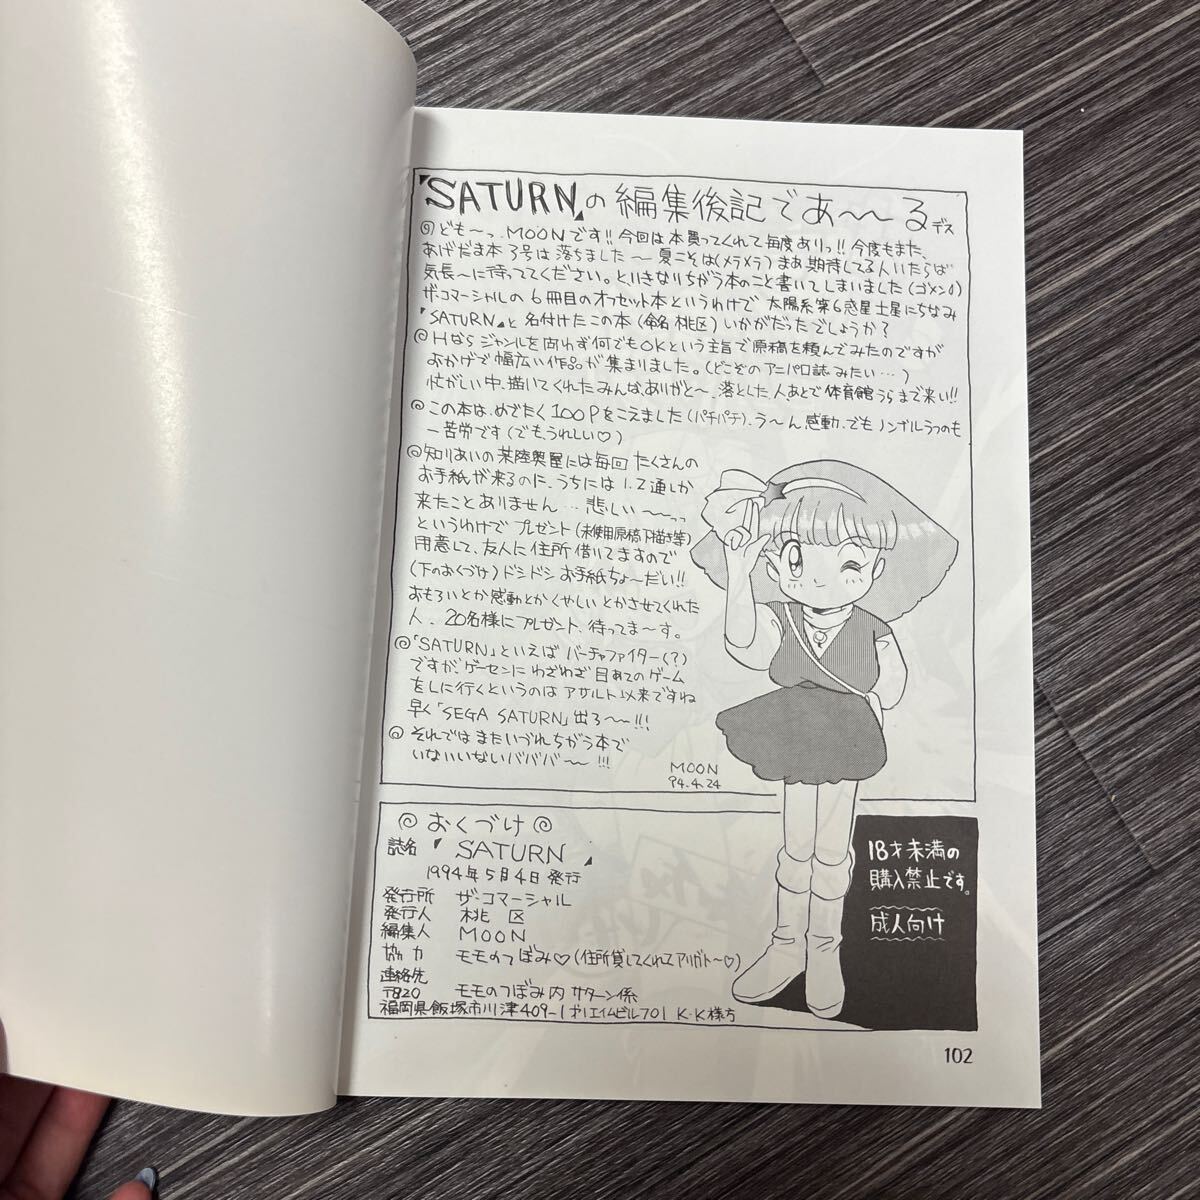 『SATURN』の編集後記であ〜〜るデス
◎ども〜っ、MOONです!!今回は本買ってくれて毎度ありっ!!今度もまた、
あげだま本3号は落ちました〜夏こそは(メラメラ)まあ期待してる人いたらば
気長〜に待っててください。といきなりちがう本のこと書いてしまいました(ゴメン)
ザ・コマーシャルの6冊目のオフセット本というわけで太陽系第6惑星土星にちなみ
『SATURN』と名付けたこの本(命名桃区)いかがだったでしょうか?
◎Hならジャンルを問わず何でもOKという主旨で原稿を頼んでみたのですが
おかげで幅広い作品が集まりました。(どこぞのアニパロ誌みたい…)
忙がしい中、描いてくれたみんな、ありがと〜、落とした人、あとで体育館うらまで来い!!
◎この本は、めでたく100Pをこえました(パチパチ)、う〜ん感動、でもノンブルうつのも
一苦労です(でも、うれしい♡)
◎知りあいの某陸奥屋には毎回たくさんの
お手紙が来るのに、うちには1、2通しか
来たことありません…悲しい〜〜っっ
というわけでプレゼント(未使用原稿下描き等)
用意して、友人に住所借りてますので
(下のおくづけ)ドシドシお手紙ちょ〜だい!!
おもろいとか感動とかくやしいとかさせてくれた
人、20名様にプレゼント、待ってま〜す。
◎「SATURN」といえばバーチャファイター(?)
ですが、ゲーセンにわざわざ目あてのゲーム
をしに行くというのはアサルト以来ですね
早く「SEGA SATURN」出ろ〜〜!!!
◎それではまたいづれちがう本で
いないいないバババ〜〜!!!
MOON
'94.4.24
◎おくづけ◎
誌名『SATURN』
1994年5月4日発行
発行所 ザ・コマーシャル
発行人 桃区
編集人 MOON
協力 モモのつぼみ♡(住所貸してくれてアリガト〜♡)
連絡先
〒820 モモのつぼみ内サターン係
福岡県飯塚市川津409-1 701 K・K様方
18才未満の
購入禁止です。
成人向け
102